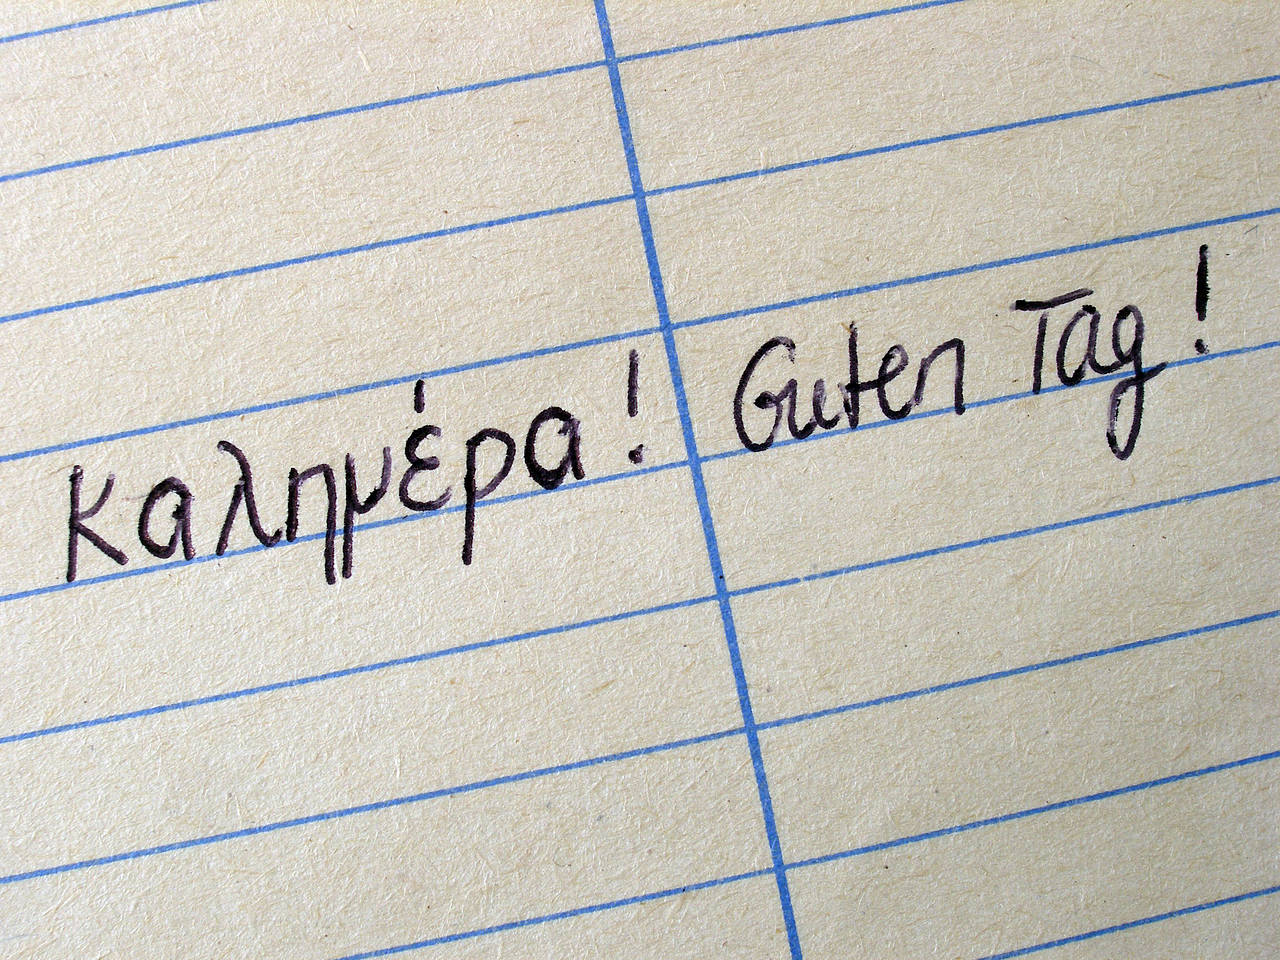 καλημέρα! Guten Tag!